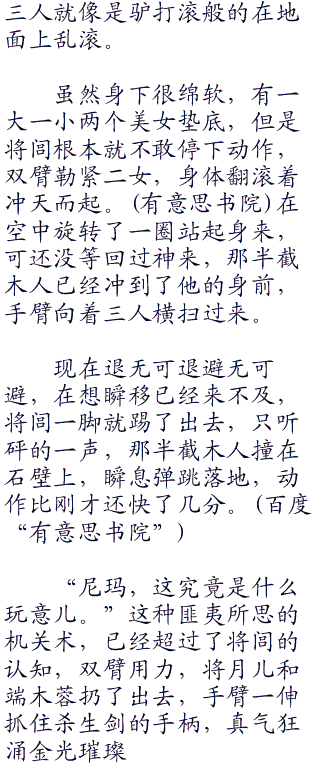 三人就像是驴打滚般的在地
面上乱滚。
虽然身下很绵软，有一
大一小两个美女垫底，但是
将闾根本就不敢停下动作，
双臂勒紧二女，身体翻滚着
冲天而起。(有意思书院)在
空中旋转了一圈站起身来，
可还没等回过神来，那半截
木人已经冲到了他的身前，
手臂向着三人横扫过来。
现在退无可退避无可
避，在想瞬移已经来不及，
将闾一脚就踢了出去，只听
砰的一声，那半截木人撞在
石壁上，瞬息弹跳落地，动
作比刚才还快了几分。(百度
“有意思书院”)
“尼玛，这究竟是什么
玩意儿。”这种匪夷所思的
机关术，已经超过了将闾的
认知，双臂用力，将月儿和
端木蓉扔了出去，手臂一伸
抓住杀生剑的手柄，真气狂
涌金光璀璨